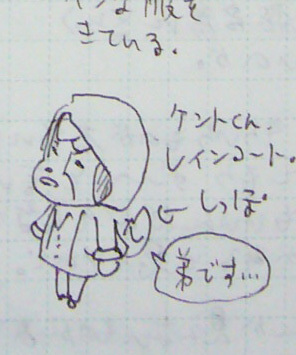 な服を
きている。
ケントくん、
レインコート。
しっぽ。
弟です…